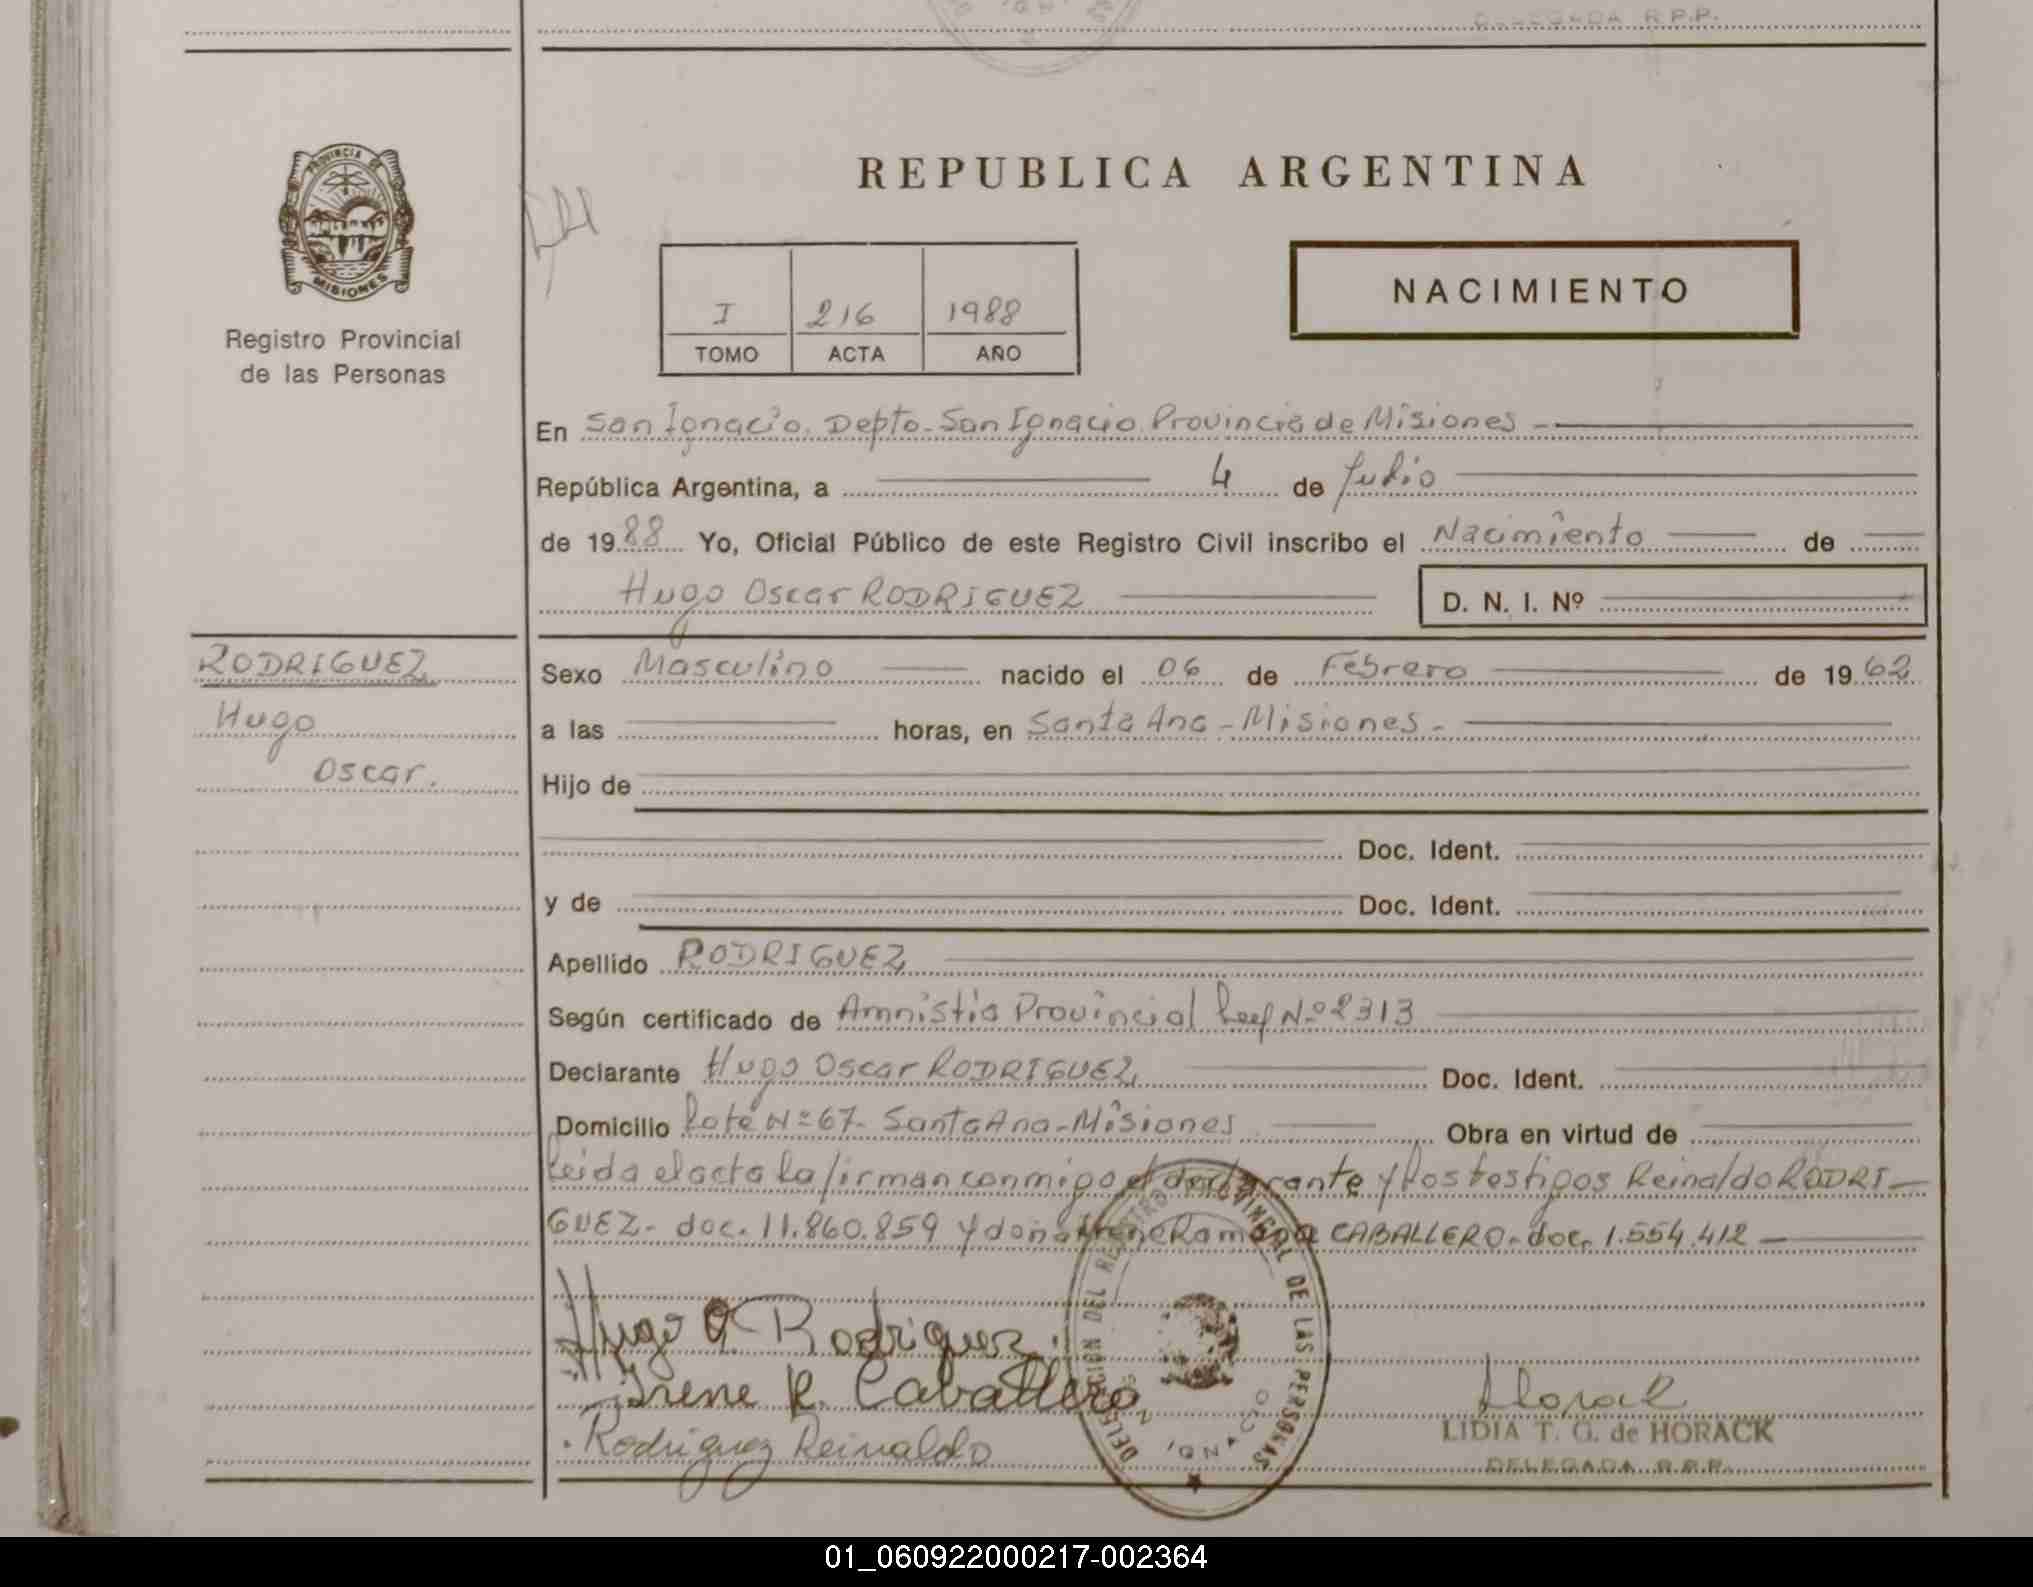 DELEGADA R.P.P.
PROVINCIA DE
MISIONES
Registro Provincial
de las Personas
REPUBLICA ARGENTINA
I 216 1988
TOMO ACTA AÑO
NACIMIENTO
En San Ignacio. Depto. San Ignacio Provincia de Misiones
República Argentina, a 4 de Julio
de 1988 Yo, Oficial Público de este Registro Civil inscribo el Nacimiento de
Hugo Oscar RODRIGUEZ D. N. I. Nº
RODRIGUEZ
Hugo
Oscar.
Sexo Masculino nacido el 06 de Febrero de 1962
a las horas, en Santa Ana - Misiones -
Hijo de
Doc. Ident.
y de Doc. Ident.
Apellido RODRIGUEZ
Según certificado de Amnistia Provincial Ley Nº 2313
Declarante Hugo Oscar RODRIGUEZ Doc. Ident.
Domicilio Lote Nº 67- Santa Ana - Misiones Obra en virtud de
Leida el acta la firman conmigo el declarante y los testigos Reinaldo RODRI-
GUEZ - doc. 11.860.859 y doña Irene Ramona CABALLERO - doc. 1.554.412 -
Hugo O. Rodriguez.
Irene R. Caballero
Rodriguez Reinaldo
DELEGACION DEL REGISTRO PROVINCIAL DE LAS PERSONAS
S. IGNACIO
Horack
LIDIA T. G. de HORACK
DELEGADA R.P.P.
01_060922000217-002364